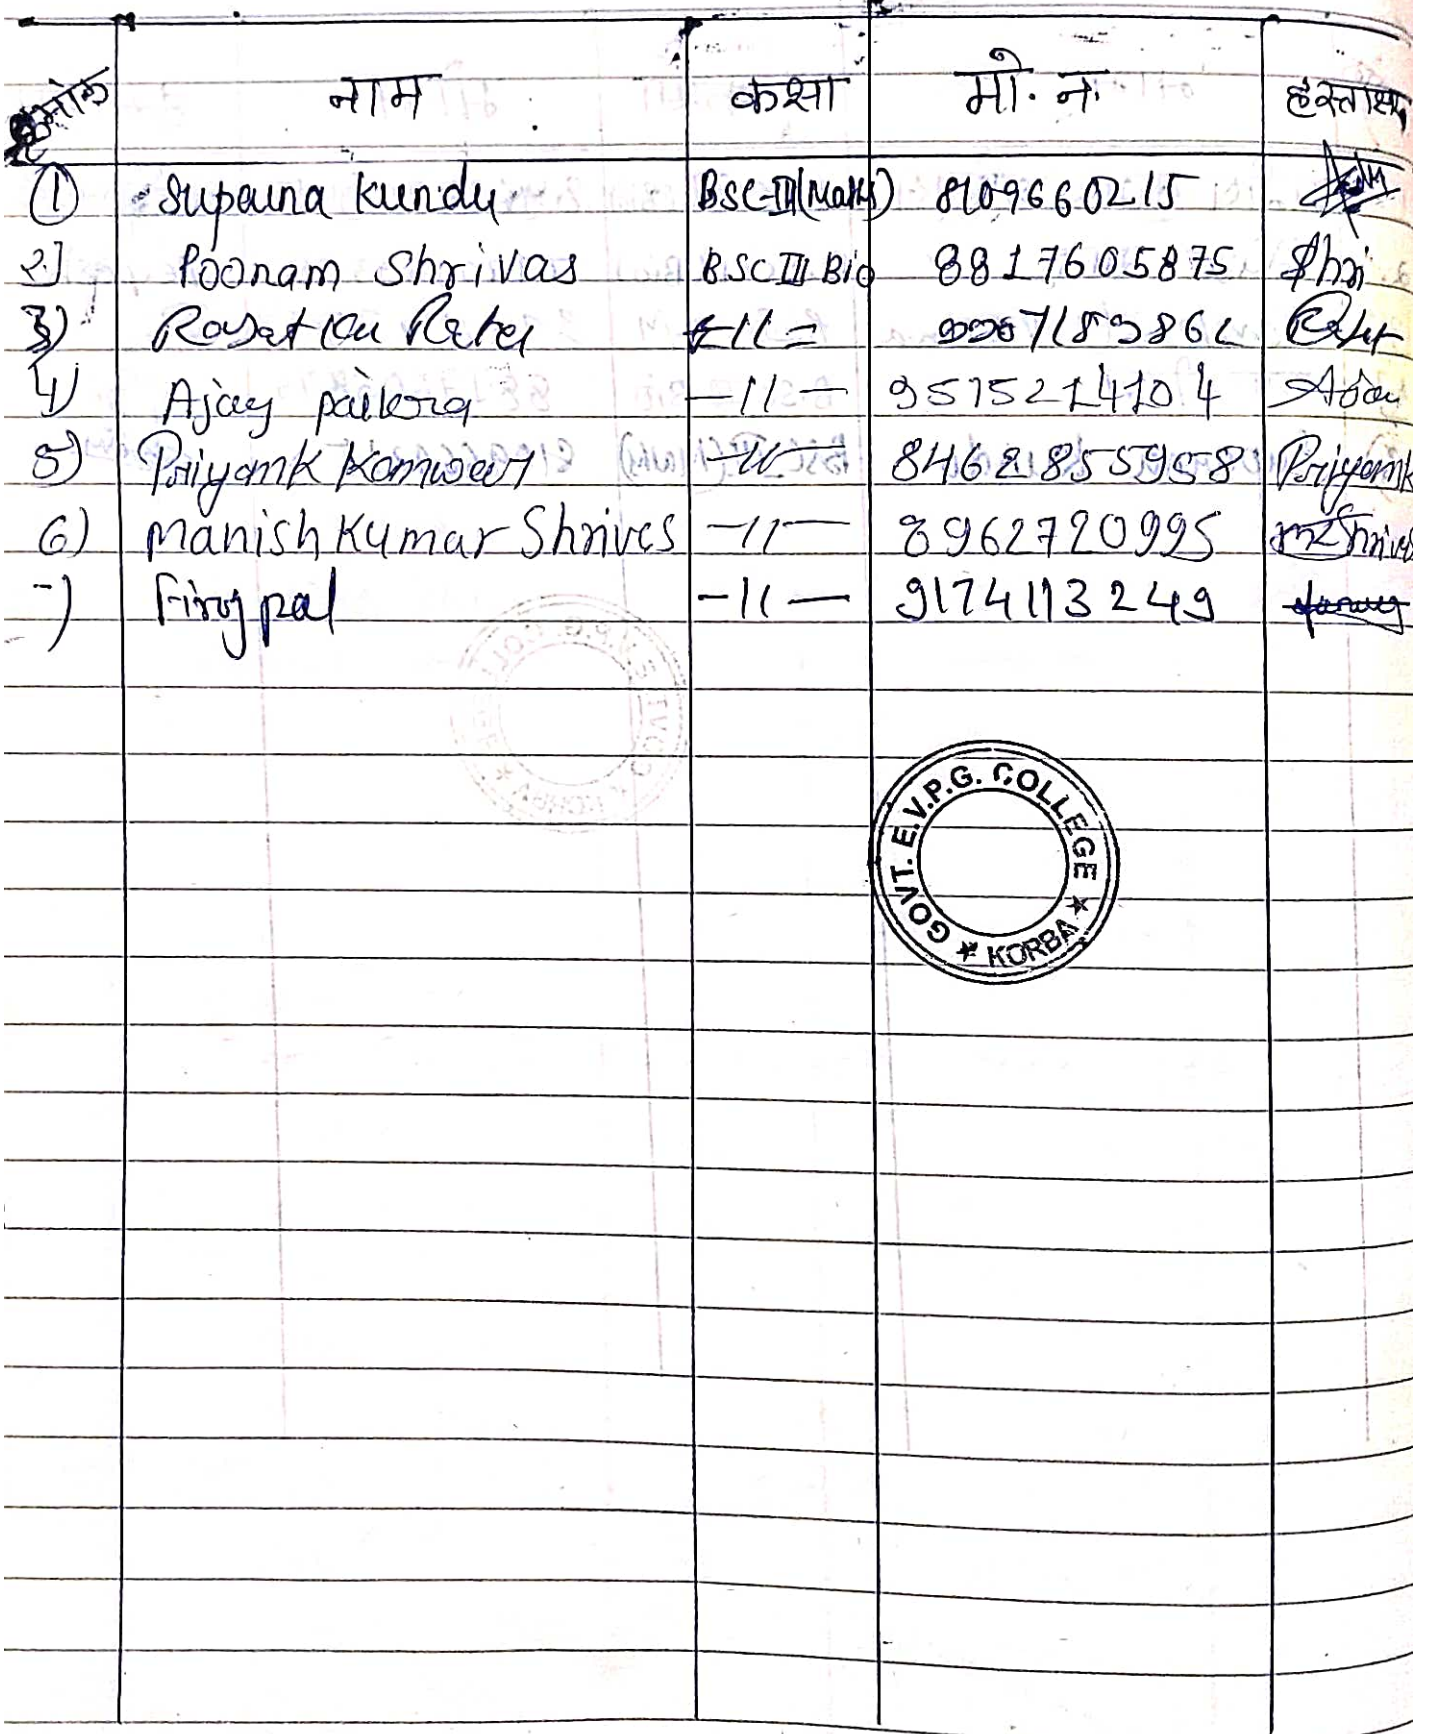 क्रमांक नाम कक्षा मो. न. हस्ताक्षर
① Suparna Kundu BSC-III(Maths) 8109660215
2) Poonam Shrivas BSC III Bio 8817605875 Shri
3) -11-
4) Ajay paikra -11- 9575214104
5) Priyamk Kanwar -11- 8462855958 Priyamk
6) Manish Kumar Shrivas -11- 8962720995 Shrivas
7) Firoj pal -11- 9174113249
GOVT. E.V.P.G. COLLEGE
★ KORBA ★